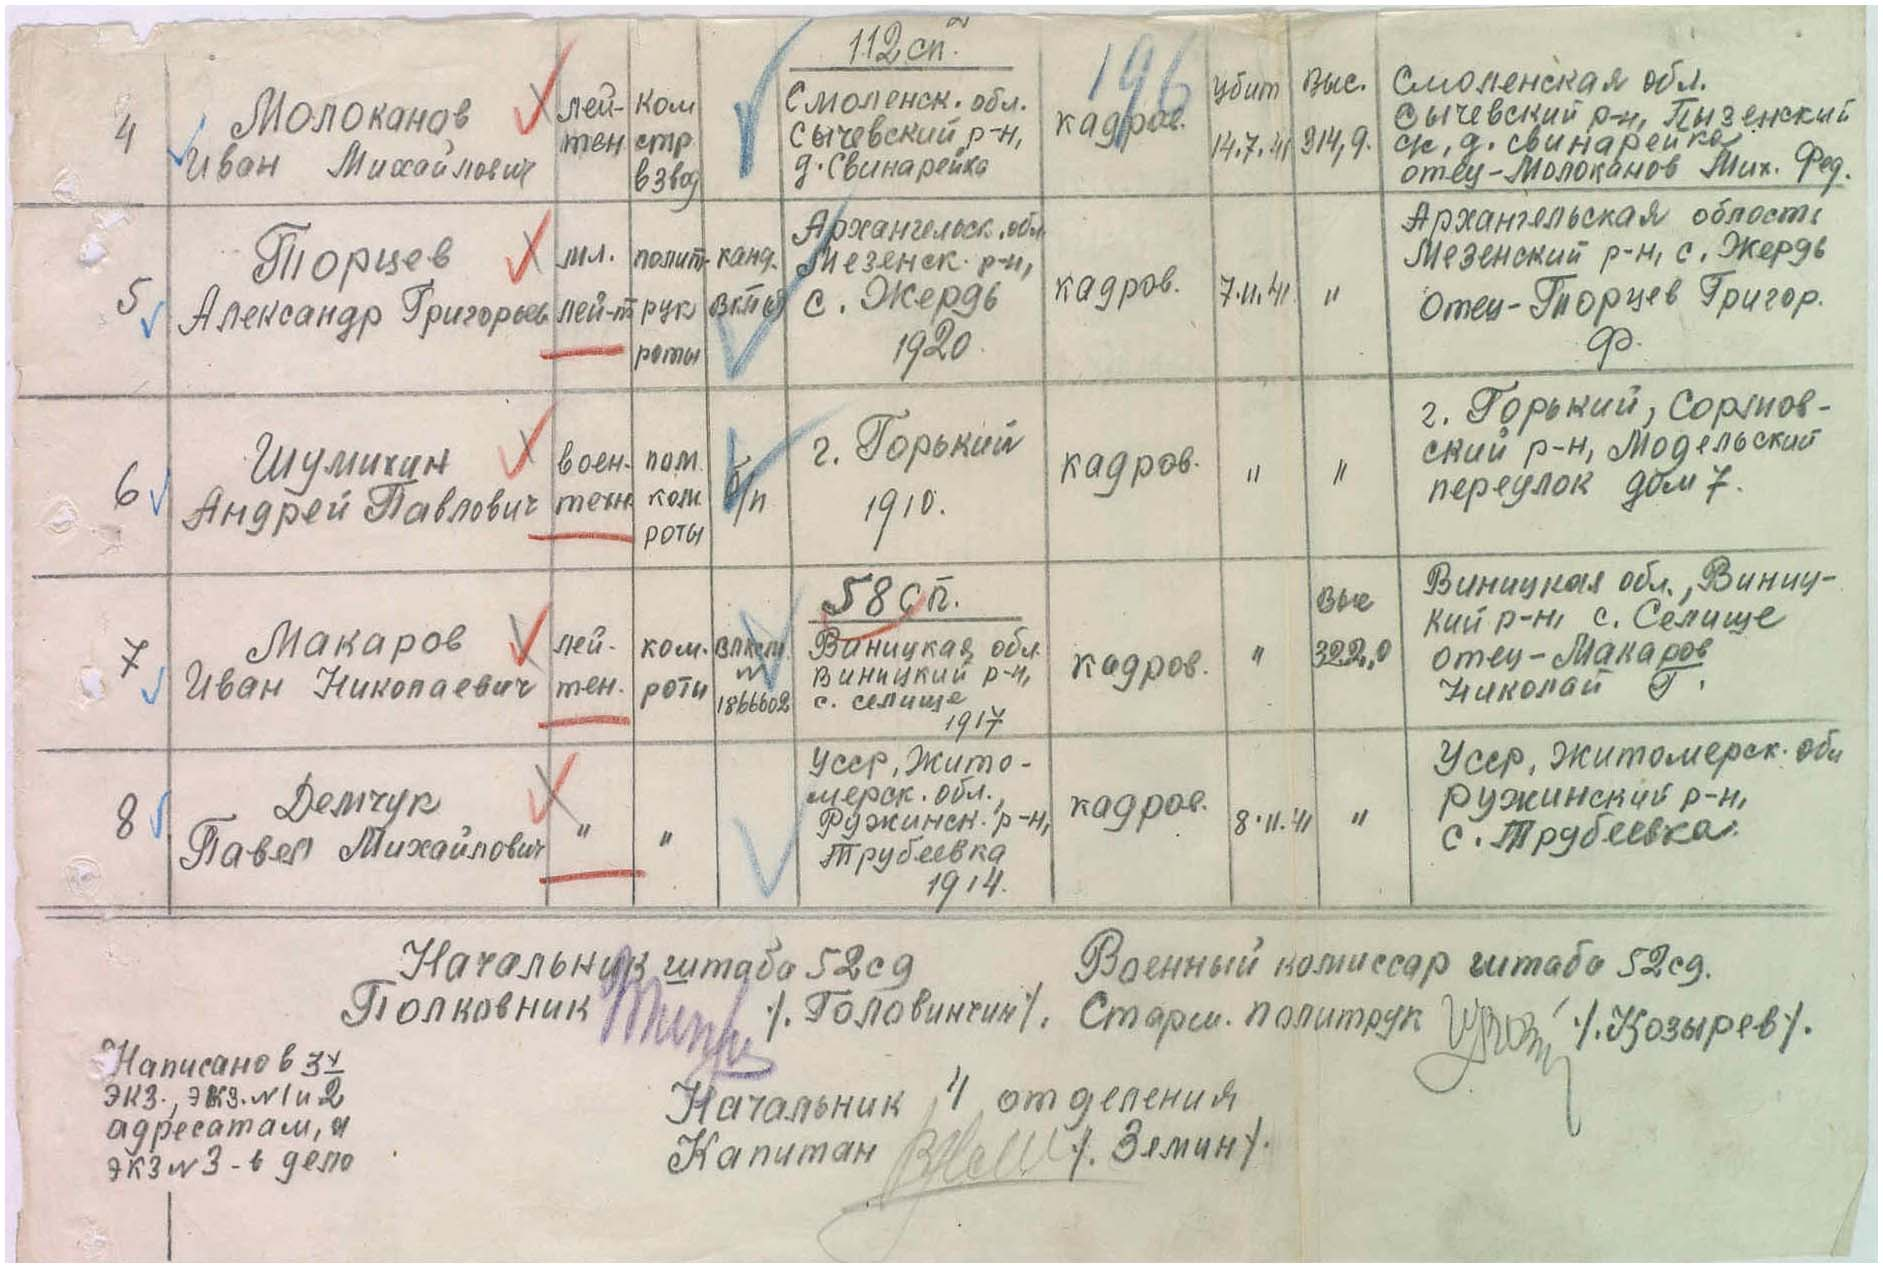 112 сп.
196
4
Молоканов
Иван Михайлович
лей-
тен
ком
стр
взвод
Смоленск. обл.
Сычевский р-н,
д. Свинарейка
кадров.
Убит
14.7.41
Выс.
314,9.
Смоленская обл.
Сычевский р-н, Пызенский
с/с, д. Свинарейка
отец-Молоканов Мих. Фед.
5
Торцев
Александр Григорьев
мл.
лей-т
полит-
рук
роты
канд.
ВКП(б)
Архангельск. обл
Мезенск. р-н,
с. Жердь
1920.
кадров.
7.11.41
"
Архангельская область
Мезенский р-н, с. Жердь
Отец-Торцев Григор.
Ф.
6
Шумихин
Андрей Павлович
воен-
техн.
пом.
ком
роты
б/п
г. Горький
1910.
кадров.
"
"
г. Горький, Сормов-
ский р-н, Модельский
переулок дом 7.
58 сп.
7
Макаров
Иван Николаевич
лей-
тен.
ком.
роты
ВЛКСМ
№
1866602
Виницкая обл.
Виницкий р-н,
с. Селище
1917
кадров.
"
Выс
322,0
Виницкая обл., Виниц-
кий р-н, с. Селище
отец-Макаров
Николай Г.
8
Демчук
Павел Михайлович
"
"
УССР, Жито-
мерск. обл.,
Ружинск. р-н,
Трубеевка
1914.
кадров.
8.11.41
"
УССР, Житомерск. обл
Ружинский р-н,
с. Трубеевка.
Начальник штаба 52сд
Полковник /. Головинчин/.
Военный комиссар штаба 52сд.
Старш. политрук /. Козырев/.
Написано в 3х
экз., экз. №1 и 2
адресатам, а
экз №3 - в дело
Начальник 4 отделения
Капитан /. Зямин/.